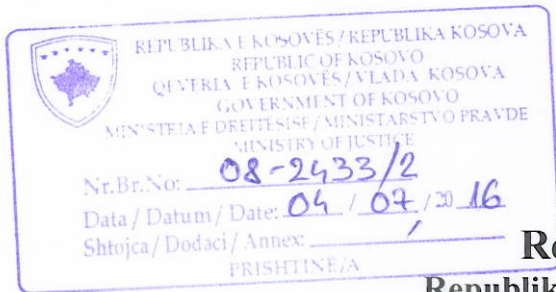 REPUBLIKA E KOSOVËS / REPUBLIKA KOSOVA
REPUBLIC OF KOSOVO
QEVERIA E KOSOVËS / VLADA KOSOVA
GOVERNMENT OF KOSOVO
MINISTRIA E DREJTËSISË / MINISTARSTVO PRAVDE
MINISTRY OF JUSTICE
Nr.Br.No: 08-2433/2
Data / Datum / Date: 04 / 07 / 20 16
Shtojca / Dodaci / Annex: /
PRISHTINË/A
Re
Republik